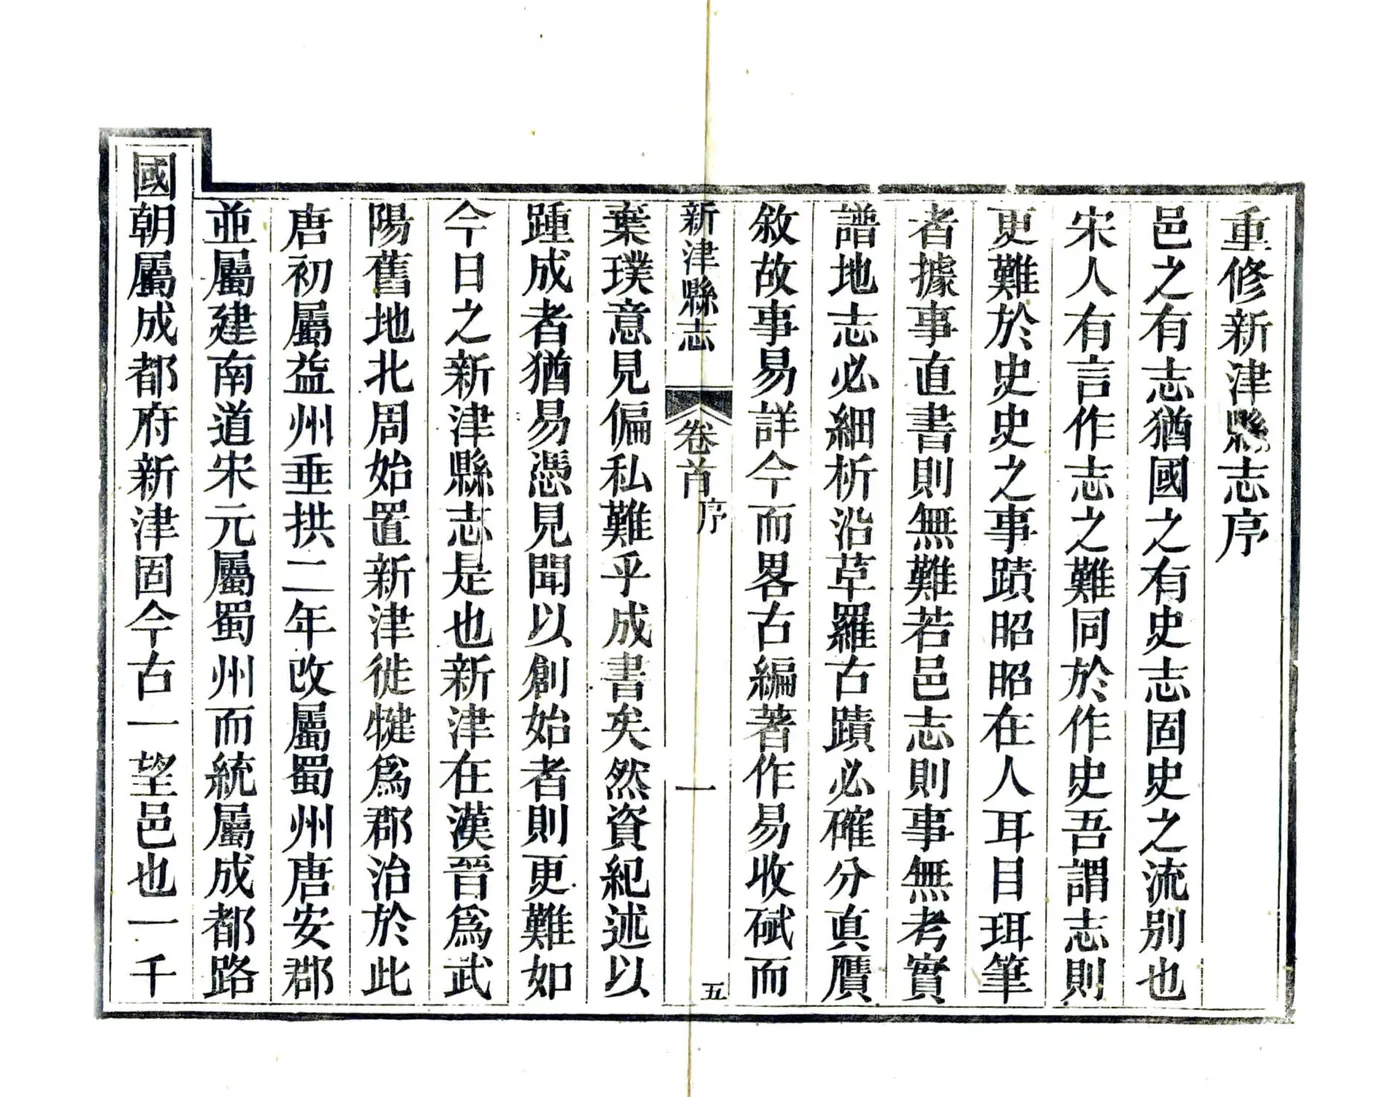 重修新津縣志序
邑之有志猶國之有史志固史之流别也
宋人有言作志之難同於作史吾謂志則
更難於史史之事蹟昭昭在人耳目珥筆
者據事直書則無難若邑志則事無考實
譜地志必細析沿革羅古蹟必確分真贋
敘故事易詳今而畧古編著作易收碔而
新津縣志
卷首
序
一
五
棄璞意見偏私難乎成書矣然資紀述以
踵成者猶易憑見聞以創始者則更難如
今日之新津縣志是也新津在漢晉爲武
陽舊地北周始置新津徙犍爲郡治於此
唐初屬益州垂拱二年改屬蜀州唐安郡
並屬建南道宋元屬蜀州而統屬成都路
國朝屬成都府新津固今古一望邑也一千